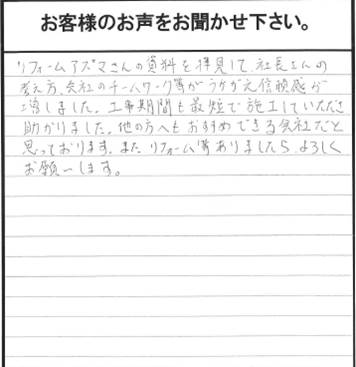 お客様のお声をお聞かせ下さい。
リフォームアズマさんの資料を拝見して、社長さんの
考え方、会社のチームワーク等がうかがえ信頼感が
増しました。工事期間も最短で施工していただき
助かりました。他の方へもおすすめできる会社だと
思っております。またリフォーム等ありましたらよろしく
お願いします。